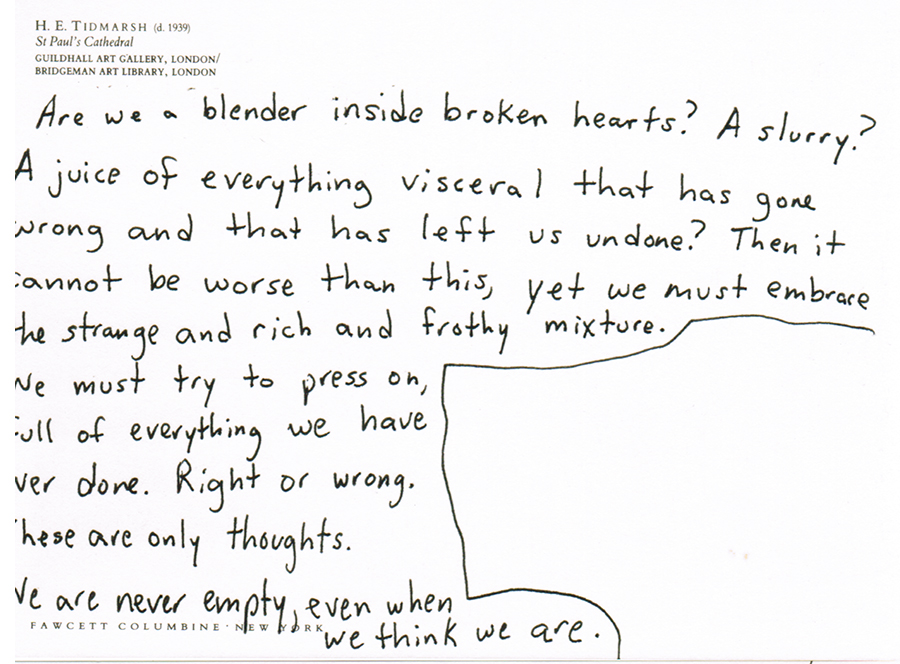 H. E. TIDMARSH (d. 1939)
St Paul's Cathedral
GUILDHALL ART GALLERY, LONDON/
BRIDGEMAN ART LIBRARY, LONDON
Are we a blender inside broken hearts? A slurry?
A juice of everything visceral that has gone
wrong and that has left us undone? Then it
cannot be worse than this, yet we must embrace
the strange and rich and frothy mixture.
We must try to press on,
full of everything we have
ver done. Right or wrong.
These are only thoughts.
We are never empty, even when
we think we are.
FAWCETT COLUMBINE · NEW YORK